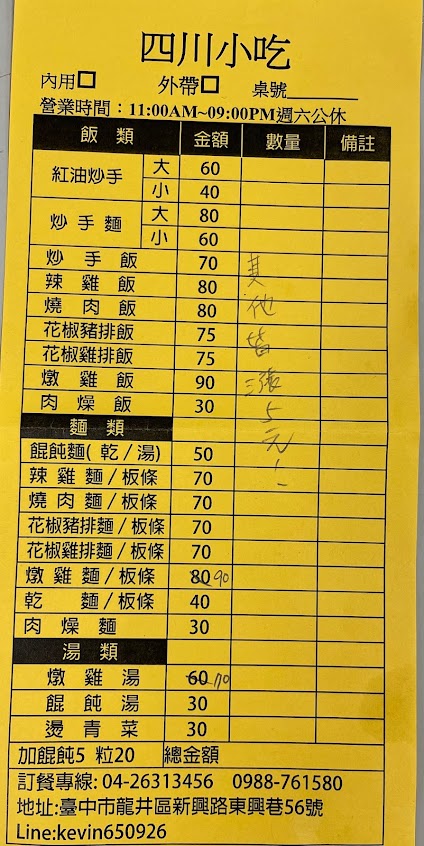 四川小吃
內用□ 外帶□ 桌號______
營業時間：11:00AM~09:00PM週六公休
飯 類 金額 數量 備註
紅油炒手 大 60
小 40
炒手麵 大 80
小 60
炒手飯 70
辣雞飯 80
燒肉飯 80
花椒豬排飯 75
花椒雞排飯 75
燉雞飯 90
肉燥飯 30
其他皆漲5元!
麵 類
餛飩麵( 乾 / 湯) 50
辣雞麵 / 板條 70
燒肉麵 / 板條 70
花椒豬排麵 / 板條 70
花椒雞排麵 / 板條 70
燉雞麵 / 板條 80 90
乾 麵 / 板條 40
肉燥麵 30
湯 類
燉雞湯 60 70
餛飩湯 30
燙青菜 30
加餛飩5 粒20 總金額
訂餐專線: 04-26313456 0988-761580
地址:臺中市龍井區新興路東興巷56號
Line:kevin650926